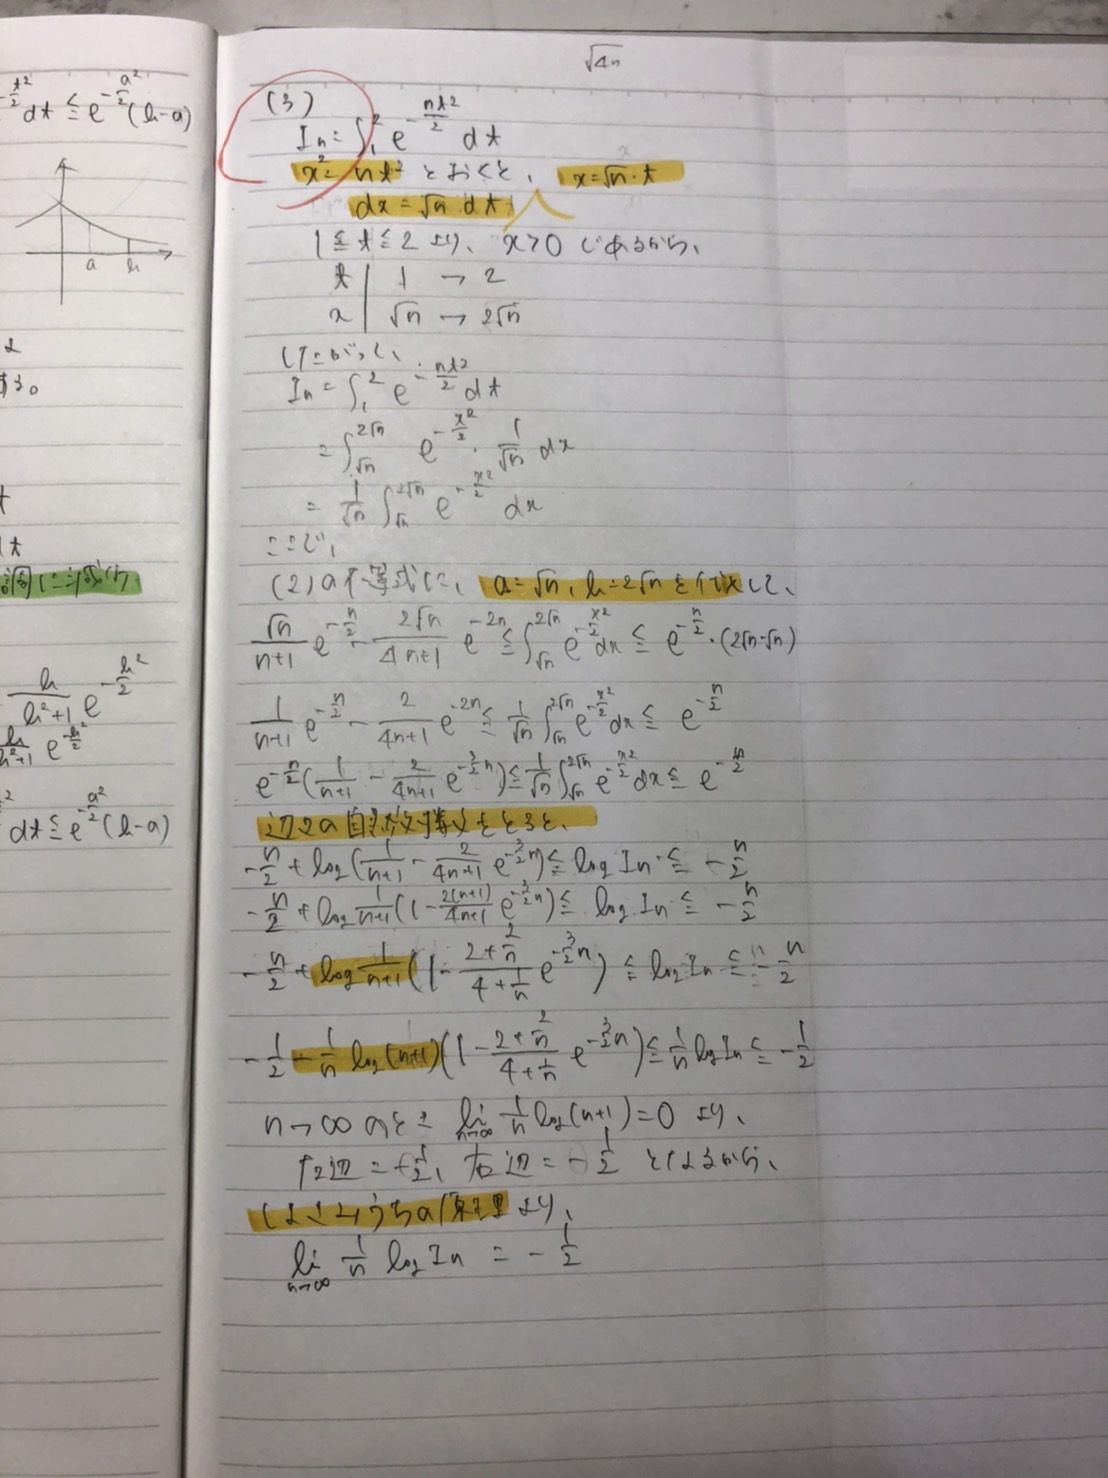 -t²/2 dt ≦ e^{-a²/2}(b-a)
a b
b/(b²+1) e^{-b²/2}
b/(b²+1) e^{-b²/2}
dt ≦ e^{-a²/2}(b-a)
√4n
(3)
In = ∫₁² e^{-nt²/2} dt
x² = nt² とおくと、 x = √n・t
dx = √n dt
1 ≦ t ≦ 2 より、 x>0 であるから、
t | 1 → 2
x | √n → 2√n
したがって、
In = ∫₁² e^{-nt²/2} dt
= ∫_{√n}^{2√n} e^{-x²/2}・1/√n dx
= 1/√n ∫_{√n}^{2√n} e^{-x²/2} dx
ここで、
(2)の不等式に、a=√n, b=2√nを代入して、
√n/(n+1) e^{-n/2} - 2√n/(4n+1) e^{-2n} ≦ ∫_{√n}^{2√n} e^{-x²/2} dx ≦ e^{-n/2}・(2√n-√n)
1/(n+1) e^{-n/2} - 2/(4n+1) e^{-2n} ≦ 1/√n ∫_{√n}^{2√n} e^{-x²/2} dx ≦ e^{-n/2}
e^{-n/2}(1/(n+1) - 2/(4n+1) e^{-3/2 n}) ≦ 1/√n ∫_{√n}^{2√n} e^{-x²/2} dx ≦ e^{-n/2}
辺々の自然対数をとると、
-n/2 + log(1/(n+1) - 2/(4n+1) e^{-3/2 n}) ≦ log In ≦ -n/2
-n/2 + log 1/(n+1) (1 - 2(n+1)/(4n+1) e^{-3/2 n}) ≦ log In ≦ -n/2
-n/2 + log 1/(n+1) (1 - (2+2/n)/(4+1/n) e^{-3/2 n}) ≦ log In ≦ -n/2
-1/2 - 1/n log(n+1)(1 - (2+2/n)/(4+1/n) e^{-3/2 n}) ≦ 1/n log In ≦ -1/2
n→∞のとき lim_{n→∞} 1/n log(n+1) = 0 より、
左辺 = -1/2, 右辺 = -1/2 となるから、
はさみうちの原理より、
lim_{n→∞} 1/n log In = -1/2